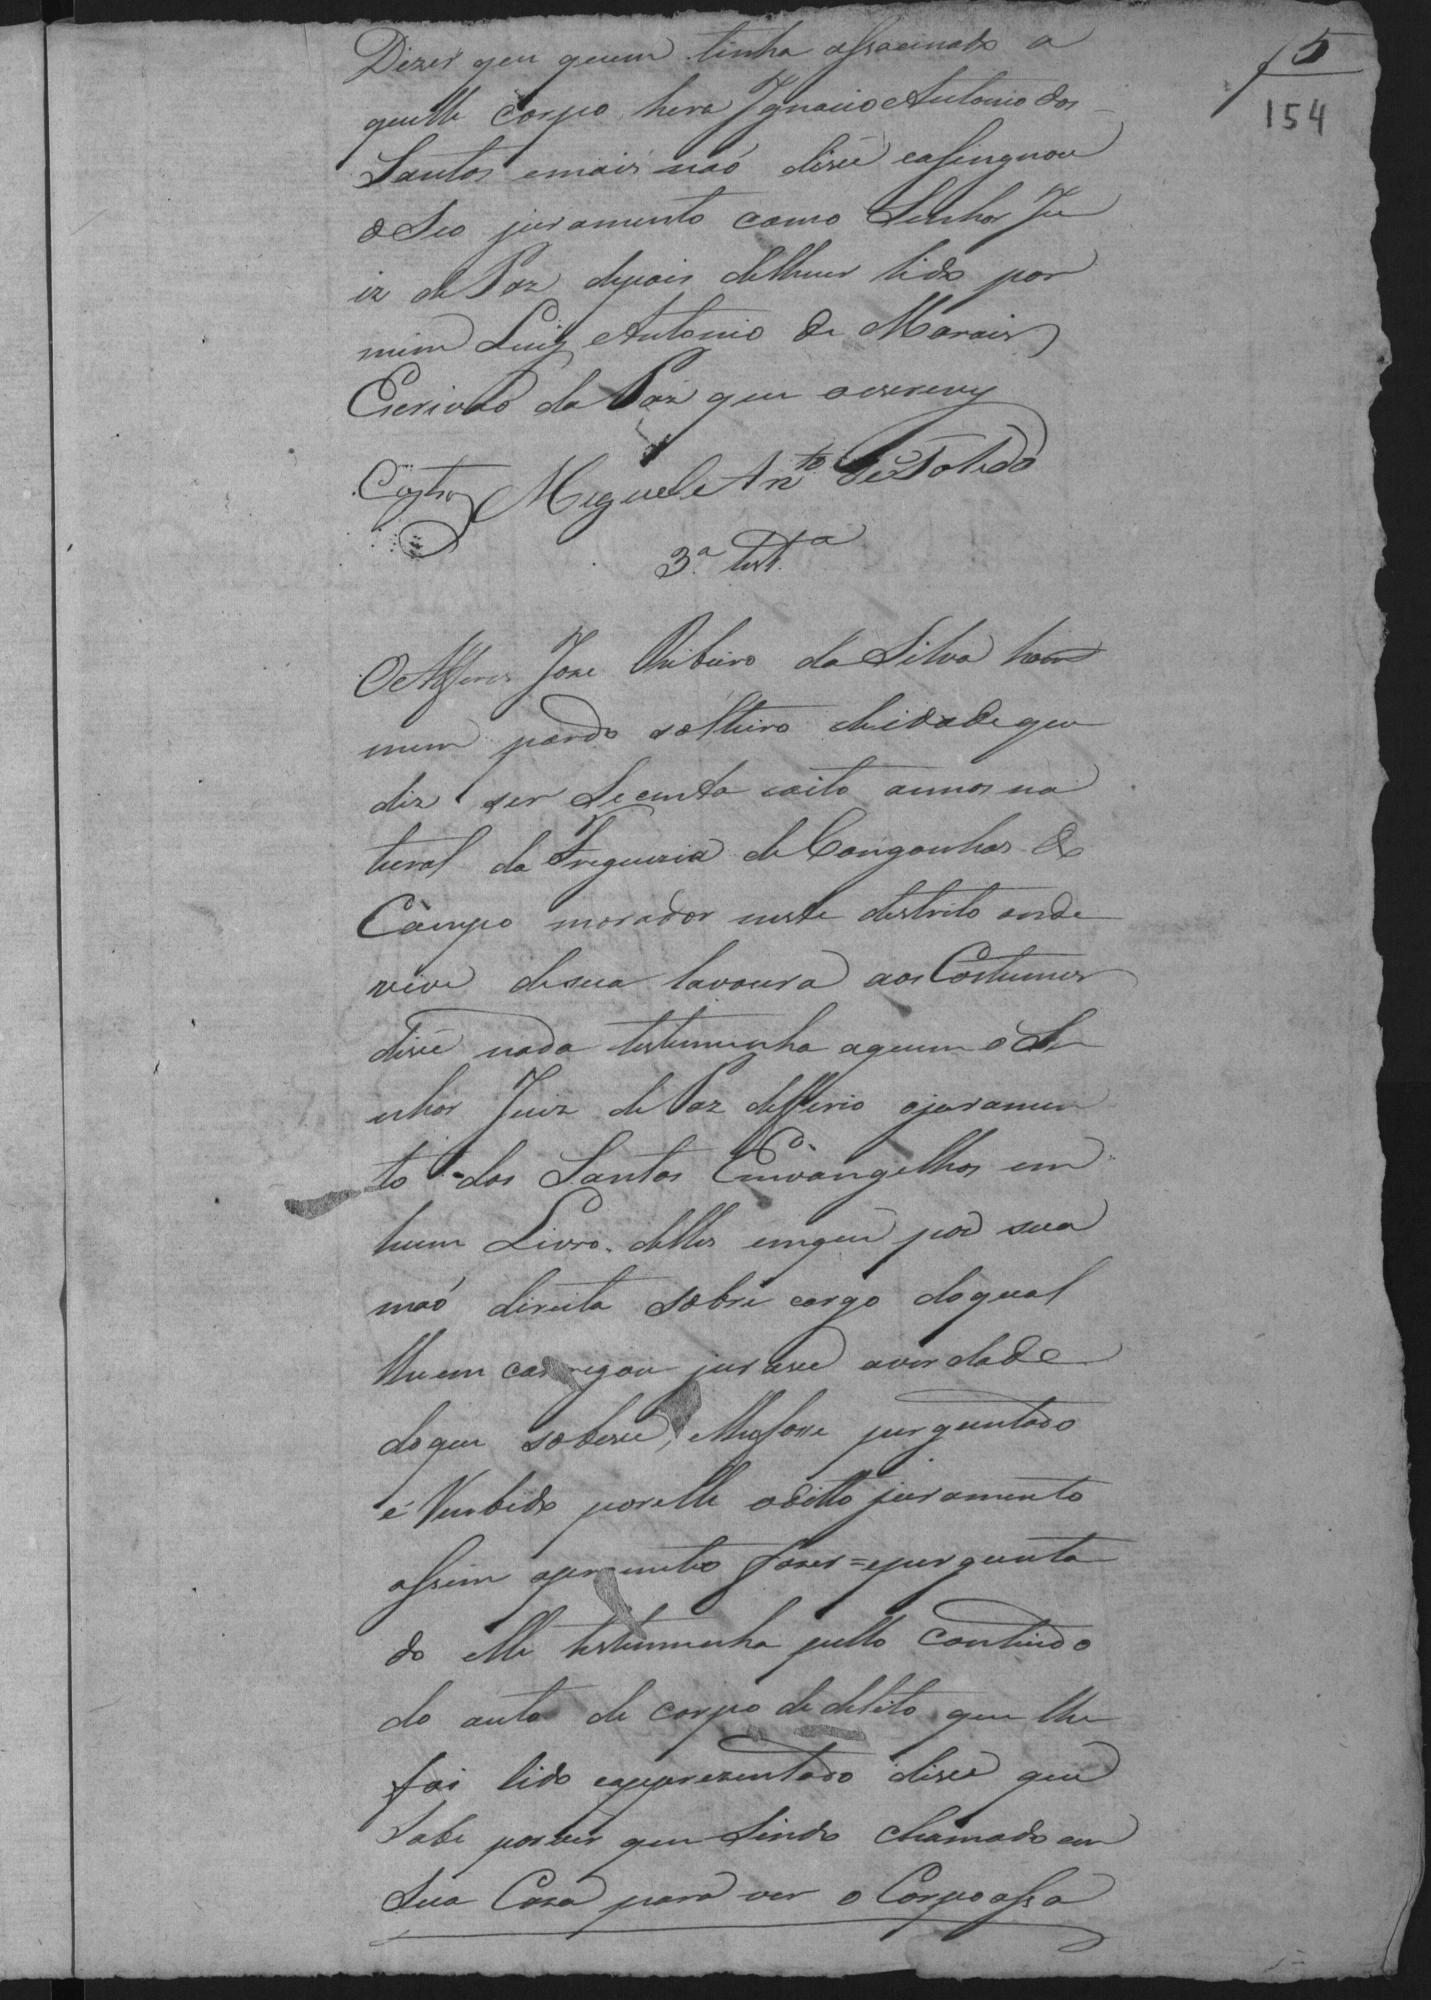 5
154
Dizer que quem tinha assacinado a
quelle corpo hera Ignacio Antonio dos
Santos emais naó dise easingnou
o Seo juramento como Senhor Ju
iz de Paz depois delhe ser lido por
mim Luiz Antonio de Morais
Escrivaõ da Paz que oescrevy
Castro Miguel Ant.º de Toledo
3.ª test.ª
O Alferes Joze Ribeiro da Silva hom
mem pardo solteiro deidade que
diz ser Secenta eoito annos na
tural da Freguezia de Congonhas do
Campo morador neste destrito onde
vive desua lavoura aos Costumes
dise nada testemunha aquem o Se
nhor Juiz de Paz defferio ojuramen
to dos Santos Envangelhos em
hum Livro delles emque pos sua
maó direita sobre cargo doqual
lhe em carregou jurase averdade
doque sobese, elhefose perguntado
e Recebido porelle oditto juramento
assim oprometeo fazer = epergunta
do elle testemunha pello contiudo
do auto de corpo de delito que lhe
foi lido eapprezentado dise que
Sabe por ver que Sindo chamado em
Sua Caza para ver o Corpo assa